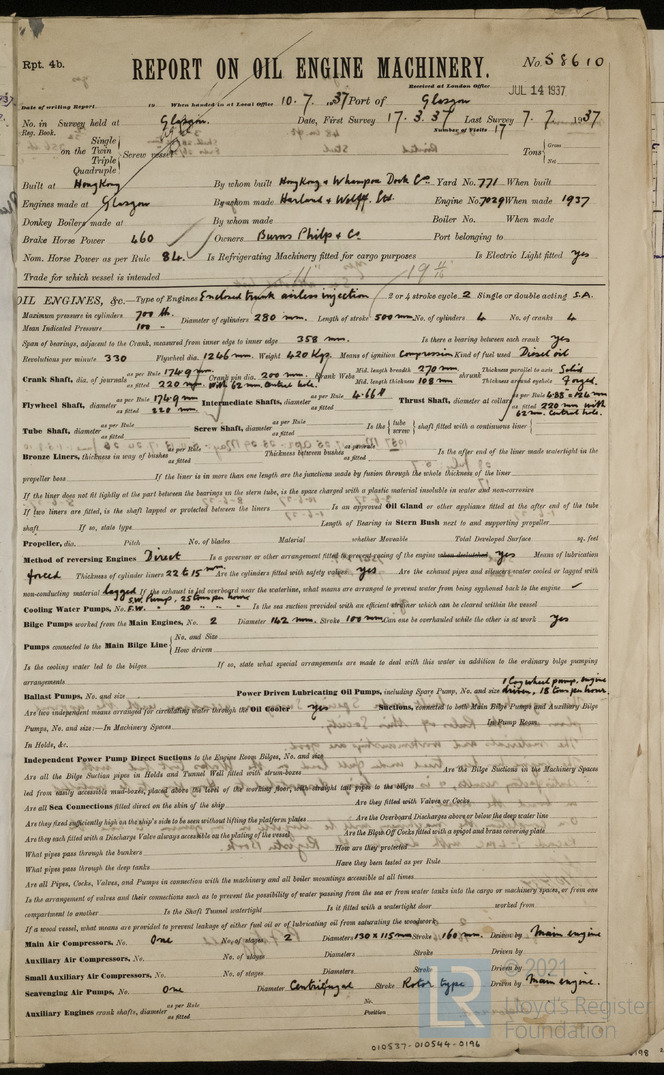 Rpt. 4b. REPORT ON OIL ENGINE MACHINERY. No. 58610
Received at London Office JUL 14 1937
Date of writing Report 19 When handed in at Local Office 10. 7. 1937 Port of Glasgow
No. in Survey held at Glasgow. Date, First Survey 17. 3. 37 Last Survey 7. 7. 1937
Reg. Book. Number of Visits 17
Single
on the Twin Screw vessel Tons Gross
Triple Net
Quadruple
Built at Hong Kong By whom built Hong Kong & Whampoa Dock Co Yard No. 771 When built
Engines made at Glasgow By whom made Harland & Wolff. Ltd. Engine No. 7029 When made 1937
Donkey Boilers made at By whom made Boiler No. When made
Brake Horse Power 460 Owners Burns Philp & Co Port belonging to
Nom. Horse Power as per Rule 84. Is Refrigerating Machinery fitted for cargo purposes Is Electric Light fitted yes
Trade for which vessel is intended
OIL ENGINES, &c.—Type of Engines Enclosed trunk airless injection 2 or 4 stroke cycle 2 Single or double acting S.A.
Maximum pressure in cylinders 700 lb. Diameter of cylinders 280 mm. Length of stroke 500 mm. No. of cylinders 4 No. of cranks 4
Mean Indicated Pressure 100 "
Span of bearings, adjacent to the Crank, measured from inner edge to inner edge 358 mm. Is there a bearing between each crank yes
Revolutions per minute 330 Flywheel dia. 1246 mm. Weight 420 Kgs. Means of ignition Compression Kind of fuel used Diesel oil
Crank Shaft, dia. of journals as per Rule 174.9 mm as fitted 220 mm. with 62 mm. central hole. Crank pin dia. 200 mm. Crank Webs Mid. length breadth 270 mm. Mid. length thickness 108 mm shrunk Thickness parallel to axis Solid Thickness around eyehole Forged.
Flywheel Shaft, diameter as per Rule 174.9 mm as fitted 220 mm. Intermediate Shafts, diameter as per Rule 4.66" as fitted Thrust Shaft, diameter at collars as per Rule 4.88" = 124 mm as fitted 220 mm with 62 mm. central hole.
Tube Shaft, diameter as per Rule as fitted Screw Shaft, diameter as per Rule as fitted Is the tube screw shaft fitted with a continuous liner
Bronze Liners, thickness in way of bushes as per Rule as fitted Thickness between bushes as per Rule as fitted Is the after end of the liner made watertight in the
propeller boss If the liner is in more than one length are the junctions made by fusion through the whole thickness of the liner
If the liner does not fit tightly at the part between the bearings in the stern tube, is the space charged with a plastic material insoluble in water and non-corrosive
If two liners are fitted, is the shaft lapped or protected between the liners Is an approved Oil Gland or other appliance fitted at the after end of the tube
shaft If so, state type Length of Bearing in Stern Bush next to and supporting propeller
Propeller, dia. Pitch No. of blades Material whether Moveable Total Developed Surface sq. feet
Method of reversing Engines Direct Is a governor or other arrangement fitted to prevent racing of the engine when declutched yes Means of lubrication
forced Thickness of cylinder liners 22 to 15 mm Are the cylinders fitted with safety valves yes Are the exhaust pipes and silencers water cooled or lagged with
non-conducting material lagged If the exhaust is led overboard near the waterline, what means are arranged to prevent water from being syphoned back to the engine
Cooling Water Pumps, No. S.W. Pump, 25 tons per hour F.W. " 20 " " " Is the sea suction provided with an efficient strainer which can be cleared within the vessel
Bilge Pumps worked from the Main Engines, No. 2 Diameter 142 mm. Stroke 100 mm Can one be overhauled while the other is at work yes
Pumps connected to the Main Bilge Line No. and Size
How driven
Is the cooling water led to the bilges If so, state what special arrangements are made to deal with this water in addition to the ordinary bilge pumping
arrangements
Ballast Pumps, No. and size Power Driven Lubricating Oil Pumps, including Spare Pump, No. and size 1 Cog wheel pump, engine driven, 18 tons per hour.
Are two independent means arranged for circulating water through the Oil Cooler yes Suctions, connected to both Main Bilge Pumps and Auxiliary Bilge
Pumps, No. and size:—In Machinery Spaces In Pump Room
In Holds, &c.
Independent Power Pump Direct Suctions to the Engine Room Bilges, No. and size
Are all the Bilge Suction pipes in Holds and Tunnel Well fitted with strum-boxes Are the Bilge Suctions in the Machinery Spaces
led from easily accessible mud-boxes, placed above the level of the working floor, with straight tail pipes to the bilges
Are all Sea Connections fitted direct on the skin of the ship Are they fitted with Valves or Cocks
Are they fixed sufficiently high on the ship's side to be seen without lifting the platform plates Are the Overboard Discharges above or below the deep water line
Are they each fitted with a Discharge Valve always accessible on the plating of the vessel Are the Blow Off Cocks fitted with a spigot and brass covering plate
What pipes pass through the bunkers How are they protected
What pipes pass through the deep tanks Have they been tested as per Rule
Are all Pipes, Cocks, Valves, and Pumps in connection with the machinery and all boiler mountings accessible at all times
Is the arrangement of valves and their connections such as to prevent the possibility of water passing from the sea or from water tanks into the cargo or machinery spaces, or from one
compartment to another Is the Shaft Tunnel watertight Is it fitted with a watertight door worked from
If a wood vessel, what means are provided to prevent leakage of either fuel oil or of lubricating oil from saturating the woodwork
Main Air Compressors, No. One No. of stages 2 Diameters 130 x 115 mm Stroke 160 mm. Driven by Main engine
Auxiliary Air Compressors, No. No. of stages Diameters Stroke Driven by
Small Auxiliary Air Compressors, No. No. of stages Diameters Stroke Driven by
Scavenging Air Pumps, No. One Diameter Centrifugal Stroke Rotor type Driven by Main engine.
Auxiliary Engines crank shafts, diameter as per Rule as fitted No. Position
© 2021
LR Lloyd's Register
Foundation
010537-010544-0196